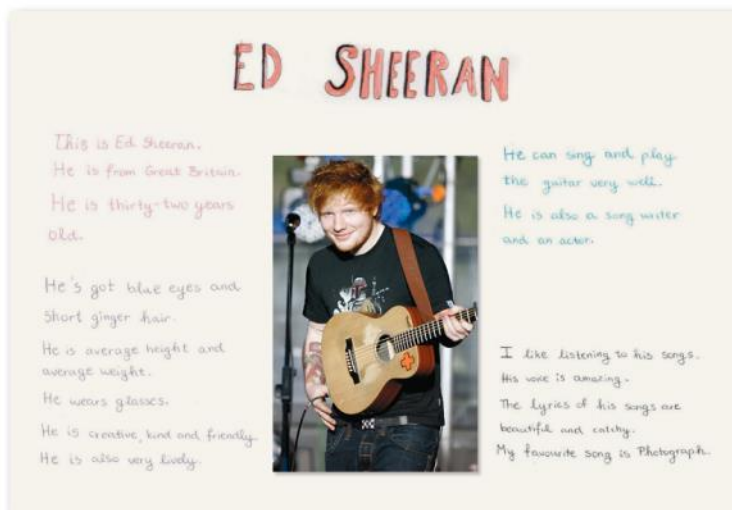 ED SHEERAN
This is Ed Sheeran.
He is from Great Britain.
He is thirty-two years
old.
He's got blue eyes and
short ginger hair.
He is average height and
average weight.
He wears glasses.
He is creative, kind and friendly.
He is also very lively.
He can sing and play
the guitar very well.
He is also a song writer
and an actor.
I like listening to his songs.
His voice is amazing.
The lyrics of his songs are
beautiful and catchy.
My favourite song is Photograph.